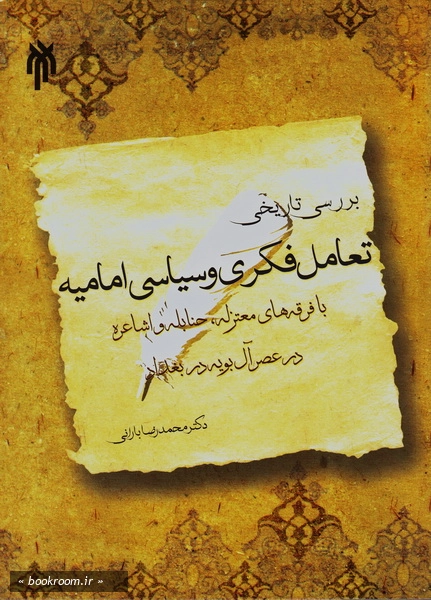 بررسی تاریخی
تعامل فکری و سیاسی امامیه
با فرقه‌های معتزله، حنابله و اشاعره
در عصر آل بویه در بغداد
دکتر محمدرضا بارانی
« bookroom.ir »